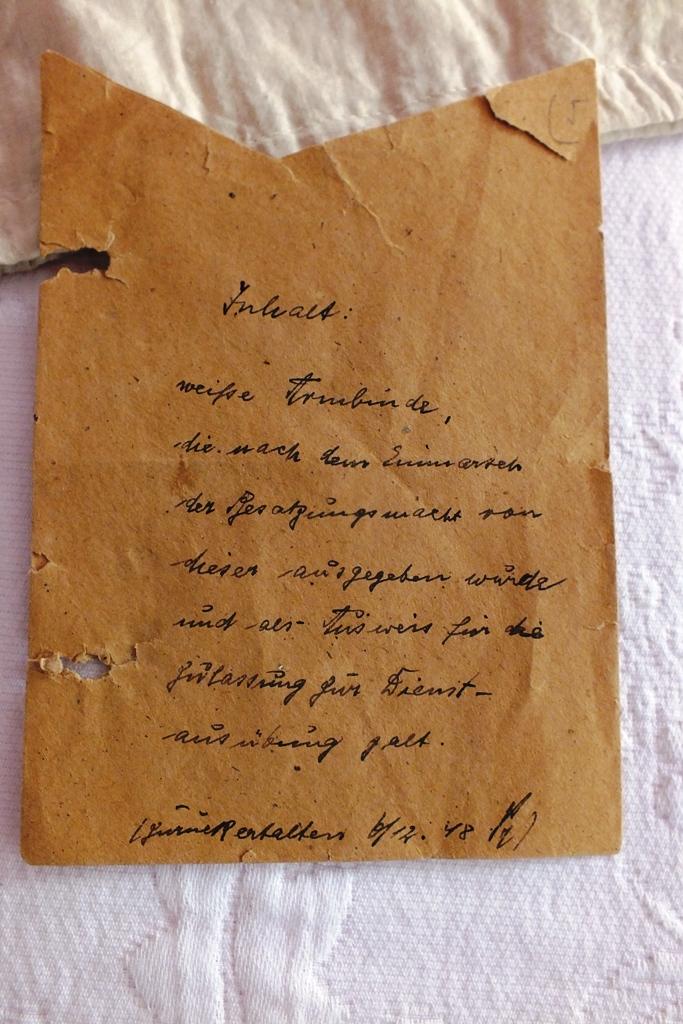 Inhalt:
weiße Armbinde,
die nach dem Einmarsch
der Besatzungsmacht von
dieser ausgegeben wurde
und als Ausweis für die
Zulassung zur Dienst-
ausübung galt.
(zurückerhalten 6/12. 48